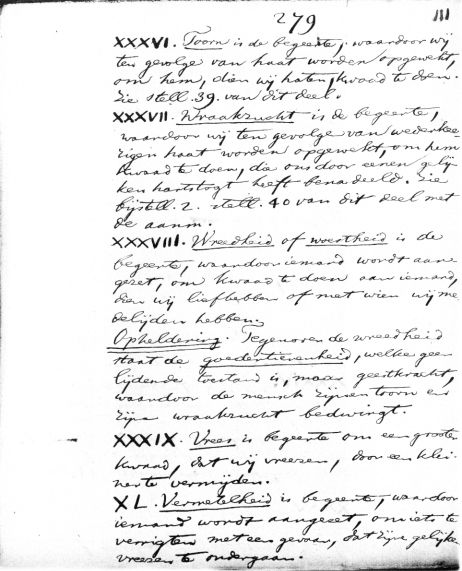 279
111
XXXVI. Toorn is de begeerte, waardoor wij
ten gevolge van haat worden opgewekt,
om hem, dien wij haten, kwaad te doen.
Zie stell. 39. van dit deel.
XXXVII. Wraakzucht is de begeerte,
waardoor wij ten gevolge van wederkee-
rigen haat worden opgewekt, om hem
kwaad te doen, die ons door eenen gelij-
ken hartstogt heeft benadeeld. Zie
bijstell. 2. stell. 40 van dit deel met
de aanm.
XXXVIII. Wreedheid of woestheid is de
begeerte, waardoor iemand wordt aan-
gezet, om kwaad te doen aan iemand,
dien wij liefhebben of met wien wij me-
delijden hebben.
Opheldering. Tegenover de wreedheid
staat de goedertierenheid, welke geen
lijdende toestand is, maar geestkracht,
waardoor de mensch zijnen toorn en
zijn wraakzucht bedwingt.
XXXIX. Vrees is begeerte om een grooter
kwaad, dat wij vreezen, door een klei-
ner te vermijden.
XL. Vermetelheid is begeerte, waardoor
iemand wordt aangezet, om iets te
verrigten met een gevaar, dat zijns gelijke
vreezen te ondergaan.